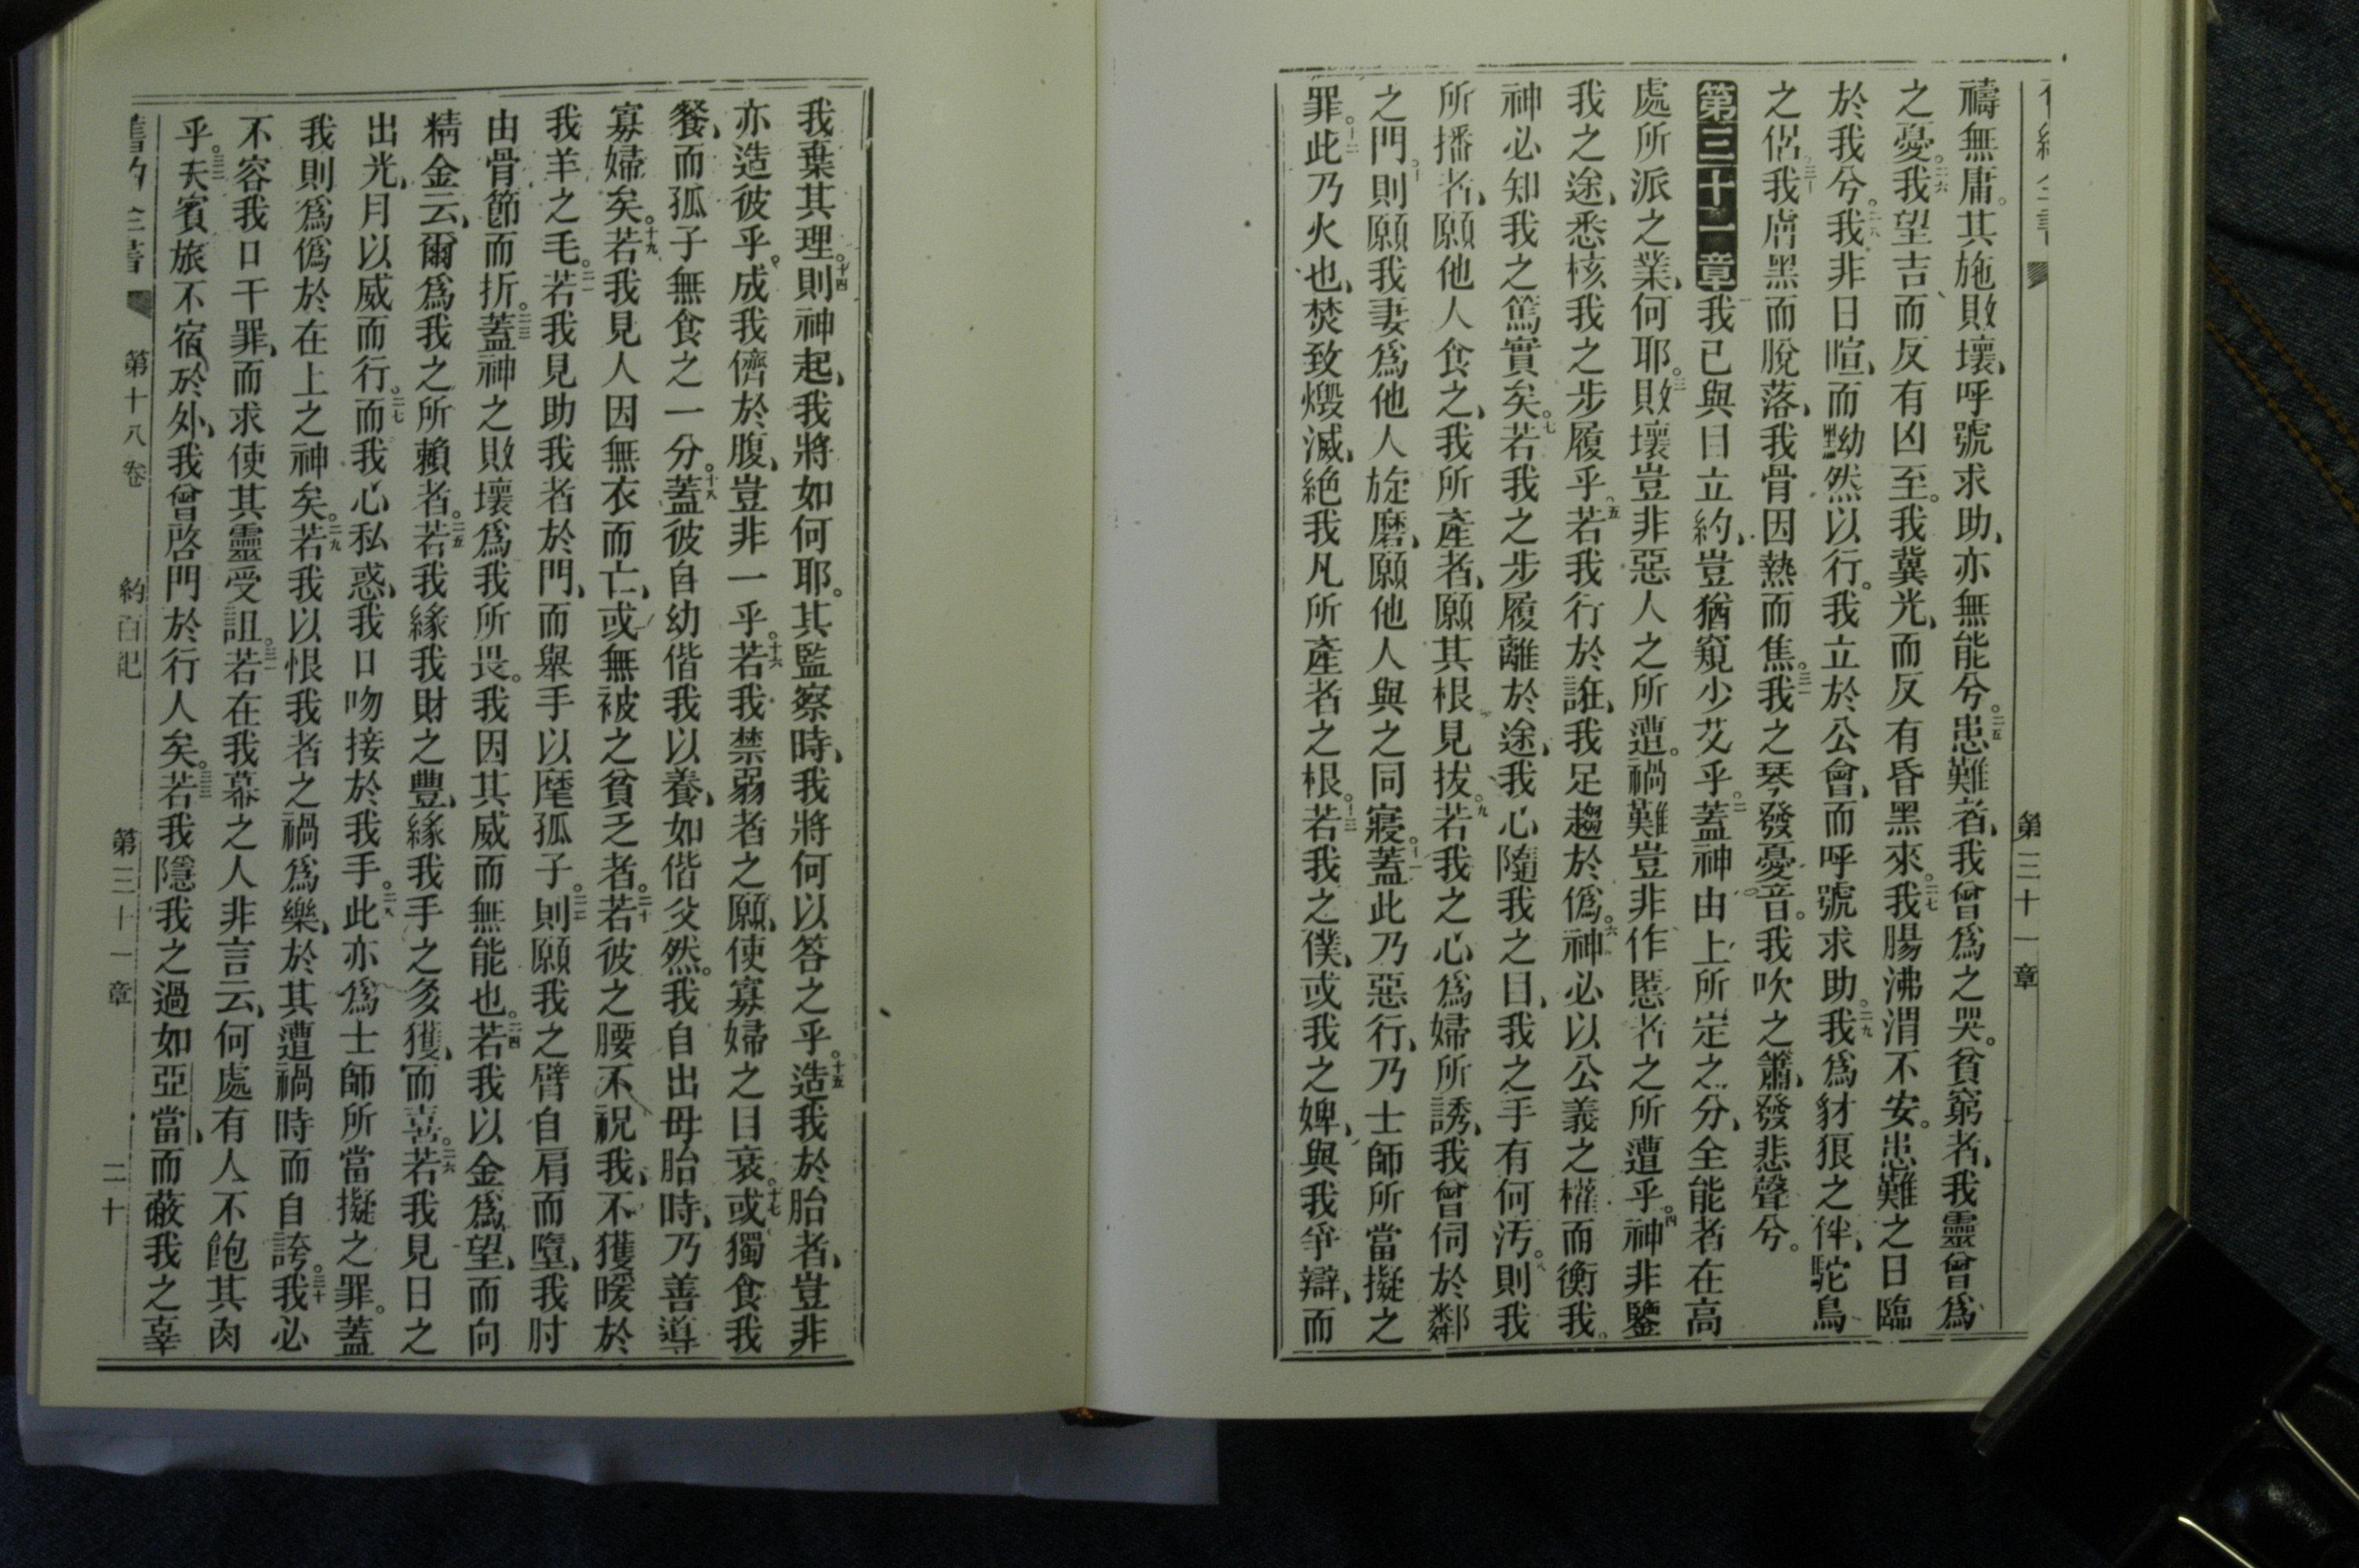 第三十一章
禱無庸。其施敗壞、呼號求助、亦無能兮。二五患難者、我曾爲之哭。貧窮者、我靈曾爲
之憂。二六我望吉而反有凶至。我冀光、而反有昏黑來。二七我腸沸渭不安。患難之日臨
於我兮。二八我非日暄、而黝然以行。我立於公會、而呼號求助。二九我爲豺狼之伴、駝鳥
之侶。三十我膚黑而脫落、我骨因熱而焦。三一我之琴發憂音。我吹之簫、發悲聲兮。
第三十一章一我已與目立約、豈猶窺少艾乎。二蓋神由上所定之分、全能者在高
處所派之業、何耶。三敗壞豈非惡人之所遭。禍難豈非作慝者之所遭乎。四神非鑒
我之途、悉核我之步履乎。五若我行於誑、我足趨於僞。六神必以公義之權而衡我。
神必知我之篤實矣。七若我之步履離於途、我心隨我之目、我之手有何汚。八則我
所播者、願他人食之、我所產者、願其根見拔。九若我之心爲婦所誘、我曾伺於鄰
之門。十則願我妻爲他人旋磨、願他人與之同寢。十一蓋此乃惡行、乃士師所當擬之
罪。十二此乃火也、焚致燬滅、絕我凡所產者之根。十三若我之僕、或我之婢、與我爭辯、而
我棄其理。十四則神起、我將如何耶。其監察時、我將何以答之乎。十五造我於胎者、豈非
亦造彼乎。成我儕於腹、豈非一乎。十六若我禁弱者之願、使寡婦之目衰。十七或獨食我
餐、而孤子無食之一分。十八蓋彼自幼偕我以養、如偕父然。我自出母胎時、乃善導
寡婦矣。十九若我見人因無衣而亡、或無被之貧乏者。二十若彼之腰不祝我、不獲暖於
我羊之毛。二一若我見助我者於門、而舉手以麾孤子。二二則願我之臂自肩而墮、我肘
由骨節而折。二三蓋神之敗壞爲我所畏。我因其威而無能也。二四若我以金爲望、而向
精金云、爾爲我之所賴者。二五若我緣我財之豐、緣我手之多獲、而喜。二六若我見日之
出光、月以威而行。二七而我心私惑、我口吻接於我手。二八此亦爲士師所當擬之罪。蓋
我則爲僞於在上之神矣。二九若我以恨我者之禍爲樂、於其遭禍時而自誇。三十我必
不容我口干罪、而求使其靈受詛。三一若在我幕之人非言云、何處有人不飽其肉
乎。三二夫賓旅不宿於外、我曾啓門於行人矣。三三若我隱我之過如亞當、而蔽我之辜
舊約全書 第十八卷 約百記 第三十一章 二十